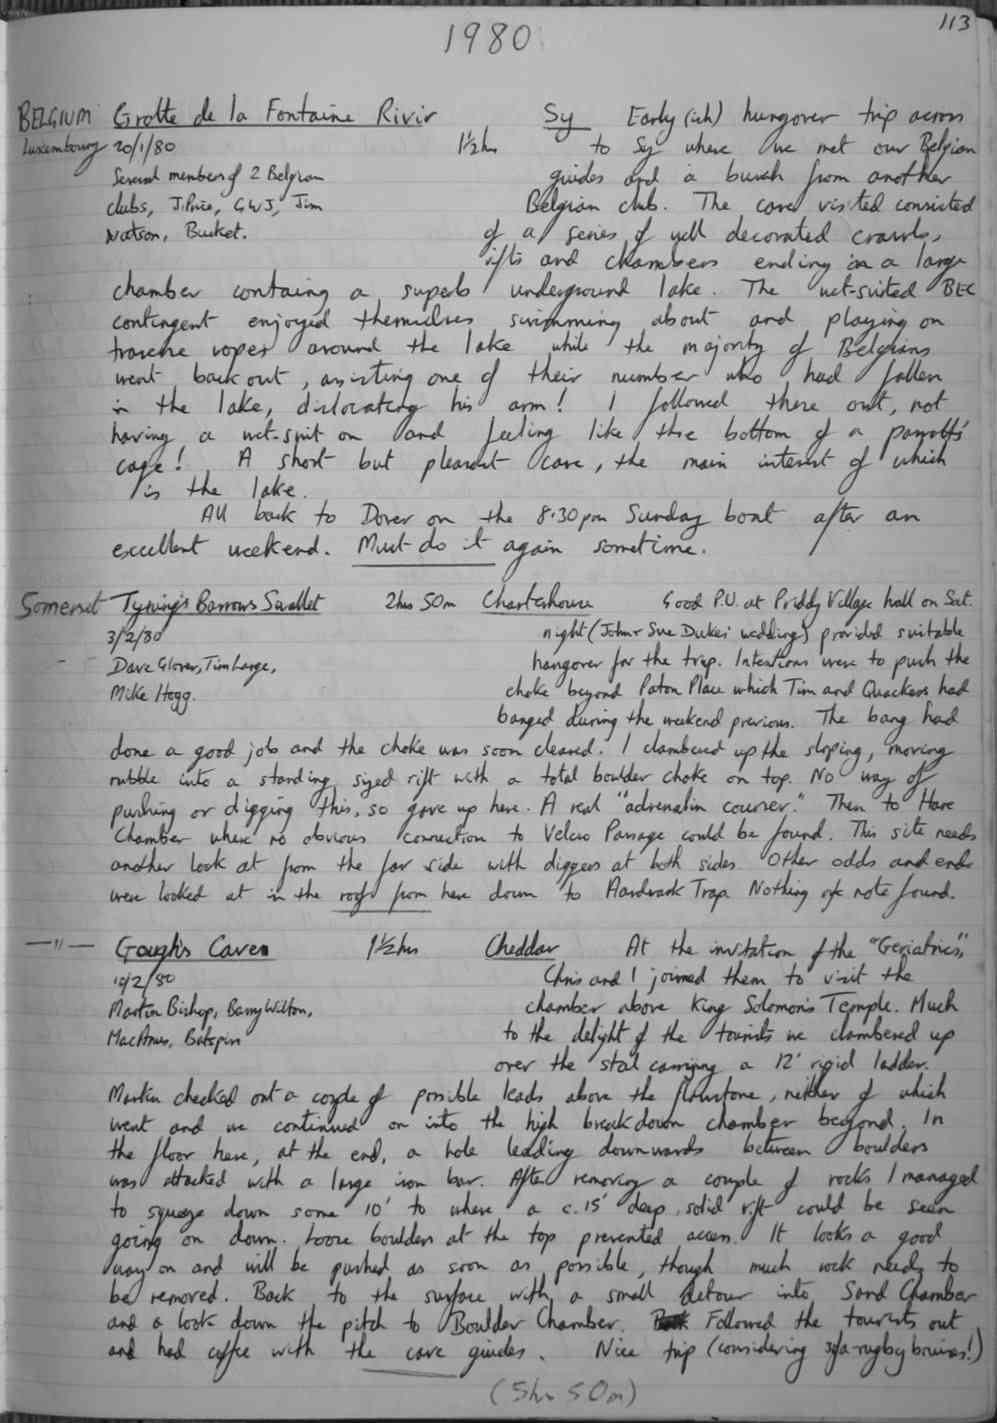 113
1980
BELGIUM Grotte de la Fontaine Rivir Sy Early (ish) hungover trip across
Luxembourg 20/1/80 1½hrs to Sy where we met our Belgian
Several members of 2 Belgian guides and a bunch from another
clubs, J.Price, GWJ, Jim Belgian club. The cave visited consisted
Watson, Bucket. of a series of well decorated crawls,
rifts and chambers ending in a large
chamber containg a superb underground lake. The wet-suited BEC
contingent enjoyed themselves swimming about and playing on
traverse ropes around the lake while the majority of Belgians
went back out, assisting one of their number who had fallen
in the lake, dislocating his arm! I followed these out, not
having a wet-suit on and feeling like the bottom of a parrott's
cage! A short but pleasant cave, the main interest of which
is the lake.
All back to Dover on the 8.30pm Sunday boat after an
excellent weekend. Must do it again sometime.
Somerset Tyning's Barrows Swallet 2hrs 50m Charterhouse Good P.U. at Priddy Village hall on Sat.
3/2/80 night (John & Sue Dukes' wedding) provided suitable
Dave Glover, Tim Large, hangover for the trip. Intentions were to push the
Mike Hogg. choke beyond Paton Place which Tim and Quackers had
banged during the weekend previous. The bang had
done a good job and the choke was soon cleared. I clambered up the sloping, moving
rubble into a standing sized rift with a total boulder choke on top. No way of
pushing or digging this, so gave up here. A real "adrenalin courser." Then to Hare
Chamber where no obvious connection to Velcro Passage could be found. This site needs
another look at from the far side with diggers at both sides. Other odds and ends
were looked at in the roof from here down to Aardvark Trap. Nothing of note found.
—"— Gough's Cave 1½hrs Cheddar At the invitation of the "Geriatrics",
10/2/80 Chris and I joined them to visit the
Martin Bishop, Barry Wilton, chamber above King Solomon's Temple. Much
MacAnus, Batspiss to the delight of the tourists we clambered up
over the stal carrying a 12' rigid ladder.
Martin checked out a couple of possible leads above the flowstone, neither of which
went and we continued on into the high breakdown chamber beyond. In
the floor here, at the end, a hole leading downwards between boulders
was attacked with a large iron bar. After removing a couple of rocks I managed
to squeeze down some 10' to where a c.15' deep, solid rift could be seen
going on down. Loose boulders at the top prevented access. It looks a good
way on and will be pushed as soon as possible, though much rock needs to
be removed. Back to the surface with a small detour into Sand Chamber
and a look down the pitch to Boulder Chamber. Followed the tourists out
and had coffee with the cave guides. Nice trip (considering sofa-rugby bruises!)
(5hr 50m)